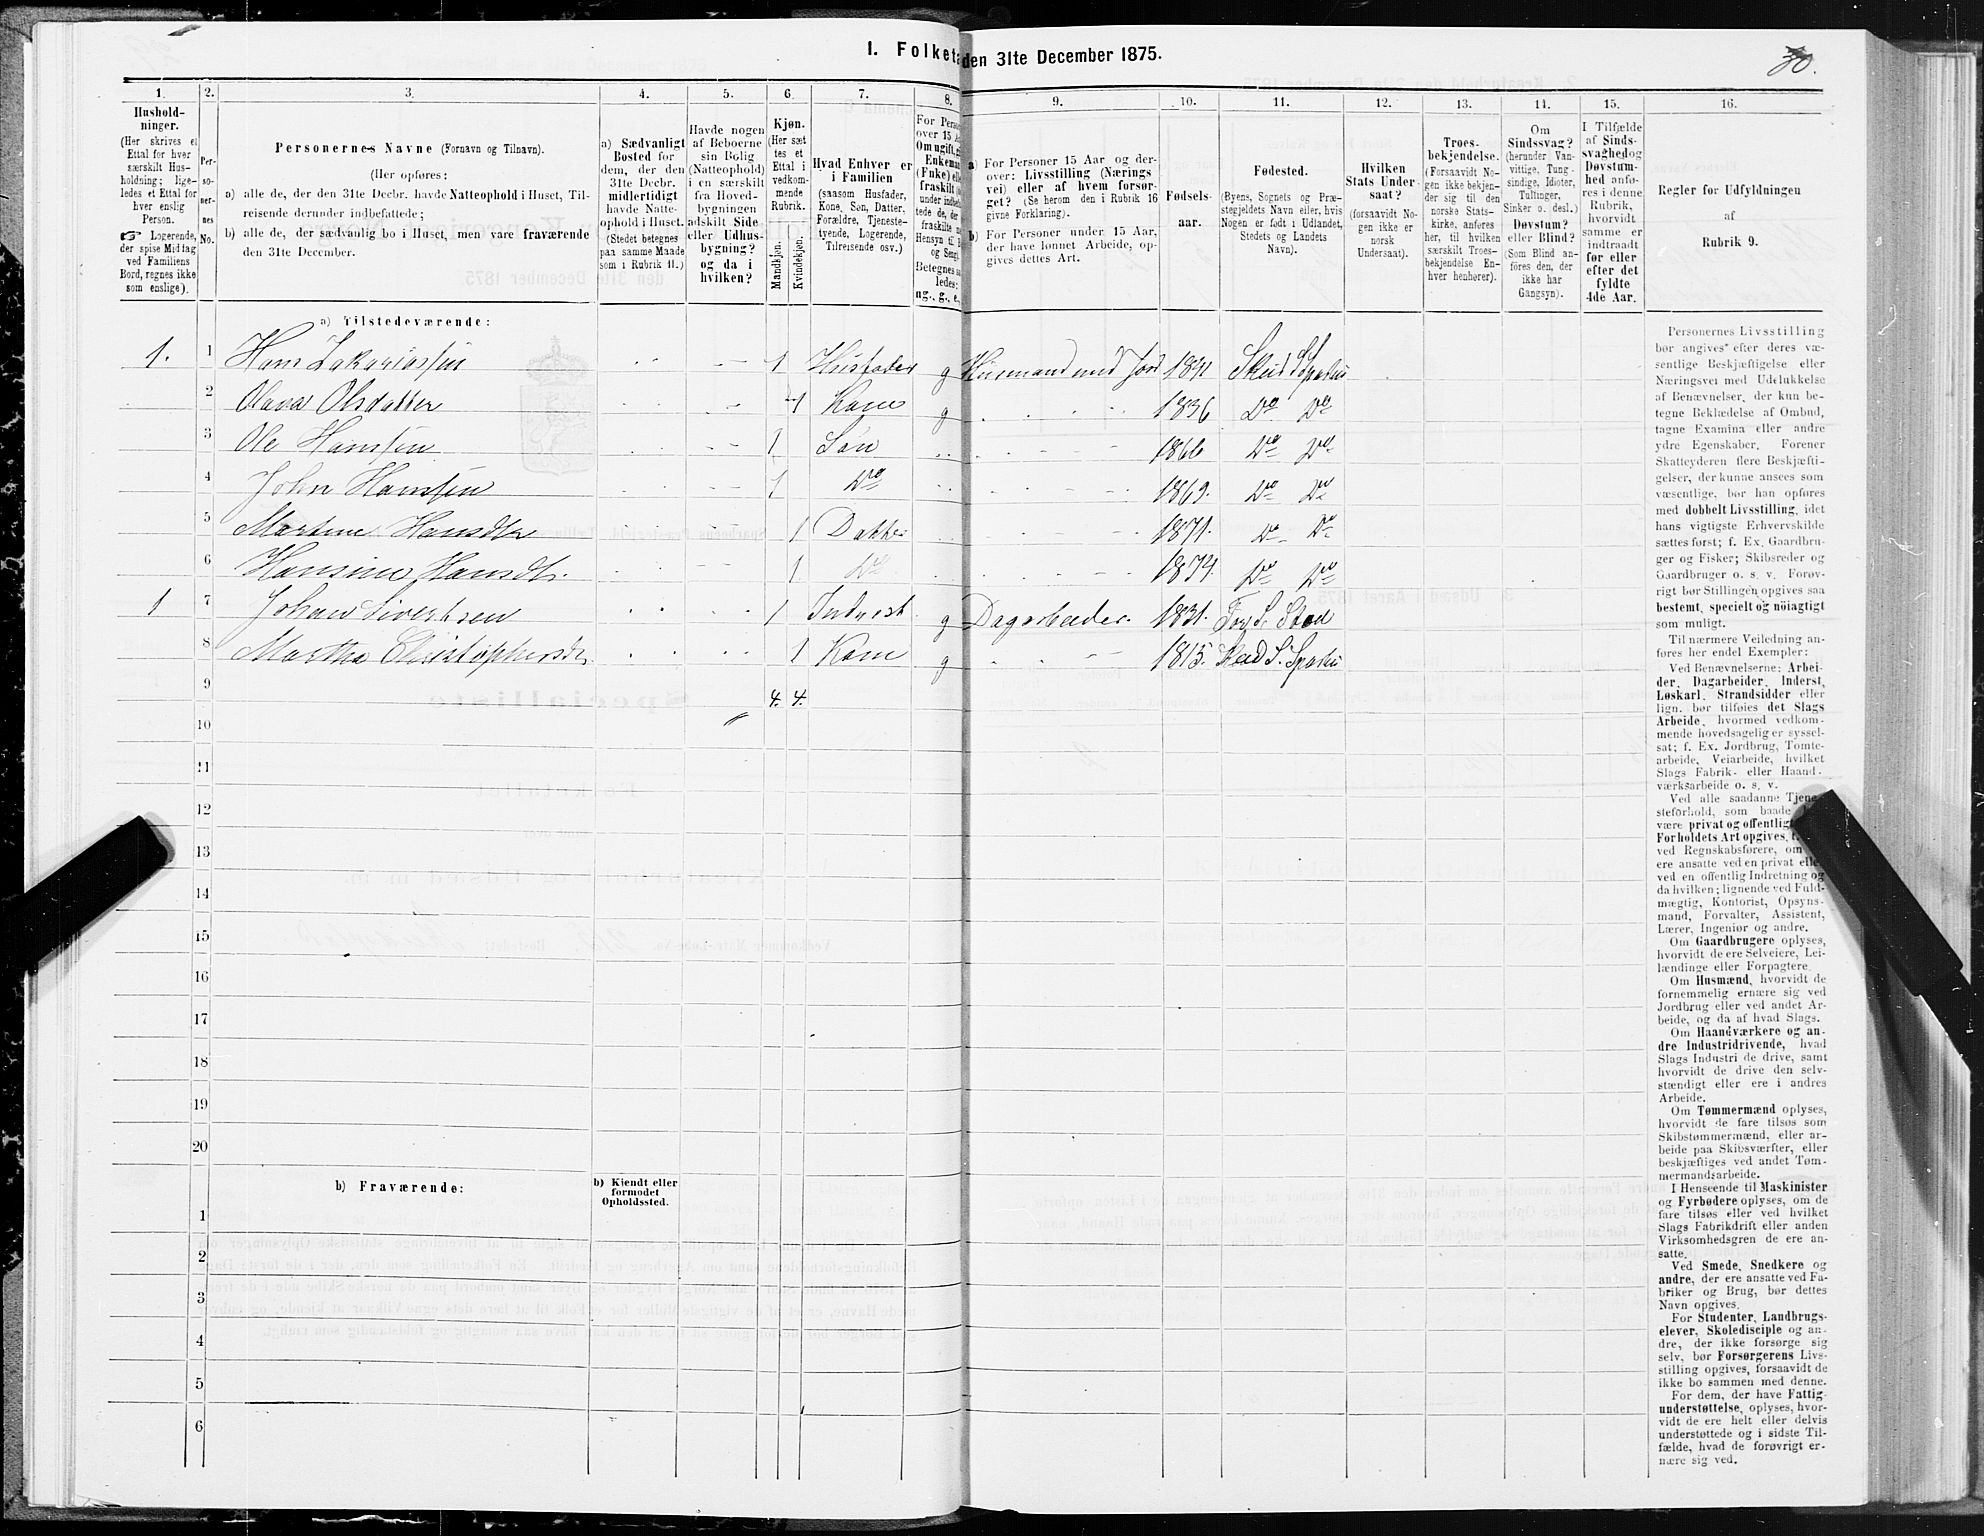 I. Folketæ den 31te December 1875.
30.
1. 2. 3. 4. 5. 6. 7. 8. 9. 10. 11. 12. 13. 14. 15. 16.
Hushold-
ninger.
(Her skrives et
Ettal for hver
særskilt Hus-
holdning; lige-
ledes et Ettal for
hver enslig
Person.
☞ Logerende,
der spise Middag
ved Familiens
Bord, regnes ikke
som enslige).
Per-
so-
ner-
nes
No.
Personernes Navne (Fornavn og Tilnavn).
(Her opføres:
a) alle de, der den 31te Decbr. havde Natteophold i Huset, Til-
reisende derunder indbefattede;
b) alle de, der sædvanlig bo i Huset, men vare fraværende
den 31te December.
a) Sædvanligt
Bosted for
dem, der den
31te Decbr.
midlertidigt
havde Natte-
ophold i Huset.
(Stedet betegnes
paa samme Maade
som i Rubrik 11.)
Havde nogen
af Beboerne
sin Bolig
(Natteophold)
i en særskilt
fra Hoved-
bygningen
adskilt Side-
eller Udhus-
bygning?
og da i
hvilken?
Kjøn.
(Her sæt-
tes et
Ettal i
vedkom-
mende
Rubrik.
Mandkjøn.
Kvindekjøn.
Hvad Enhver er
i Familien
(saasom Husfader,
Kone, Søn, Datter,
Forældre, Tjeneste-
tyende, Logerende,
Tilreisende osv.)
For Perso
over 15 A
Om ugift, g
Enkeman
(Enke) el
fraskilt
under indbe
tede de, de
fraskilte
Hensyn til B
og Seng)
Betegnes sa
ledes:
ug., g., e.,
a) For Personer 15 Aar og der-
over: Livsstilling (Nærings
vei) eller af hvem forsør-
get? (Se herom den i Rubrik 16
givne Forklaring).
b) For Personer under 15 Aar,
der have lønnet Arbeide, op-
gives dettes Art.
Fødsels-
aar.
Fødested.
(Byens, Sognets og Præ-
stegjeldets Navn eller, hvis
Nogen er født i Udlandet,
Stedets og Landets
Navn).
Hvilken
Stats Under-
saat?
(forsaavidt No-
gen ikke er
norsk
Undersaat).
Troes-
bekjendelse.
(Forsaavidt No-
gen ikke bekjen-
der sig til den
norske Stats-
kirke, anføres
her, til hvilken
særskilt Troes-
bekjendelse En-
hver henhører).
Om
Sindssvag?
(herunder Van-
vittige, Tung-
sindige, Idioter,
Tullinger,
Sinker o. desl.)
Døvstum?
eller Blind?
(Som Blind an-
føres den, der
ikke har
Gangsyn).
I Tilfælde
af Sinds-
svaghed og
Døvstum-
hed anfø-
res i denne
Rubrik,
hvorvidt
samme er
indtraadt
før eller
efter det
fyldte
4de Aar.
Regler for Udfyldningen
af
Rubrik 9.
a) Tilstedeværende:
1. 1 Hans Zakariassen 1 Husfader g Huusmand med Jord 1841 Skeid S. Sparbu
2 Olava Olsdatter 1 Kone g 1836 Do Do
3 Ole Hanssen 1 Søn 1866 Do Do
4 John Hanssen 1 Do 1869. Do Do
5 Martine Hansdtr 1 Datter 1871. Do Do
6 Hansine Hansdtr. 1. Do 1874. Do Do
1 7 Johan Sivertsen 1 Inderst g Dagarbeider. 1831. S. Stod
8 Martha Christophersdr 1 Kone g 1815. S. Sparbu
9 4. 4.
10
11
12
13
14
15
16
17
18
19
20
b) Fraværende:
b) Kiendt eller
formodet
Opholdssted.
1
2
3
4
5
6
Personernes Livsstilling
bør angives efter deres væ-
sentlige Beskjæftigelse eller
Næringsvei med Udelukkelse
af Benævnelser, der kun be-
tegne Beklædelse af Ombud,
tagne Examina eller andre
ydre Egenskaber. Forener
Skatteyderen flere Beskjæfti-
gelser, der kunne ansees som
væsentlige, bør han opføres
med dobbelt Livsstilling, idet
hans vigtigste Erhvervskilde
sættes først; f. Ex. Gaardbru-
ger og Fisker; Skibsreder og
Gaardbruger o. s. v. Forøv-
rigt bør Stillingen opgives saa
bestemt, specielt og nöiagtigt
som muligt.
Til nærmere Veiledning an-
føres her endel Exempler:
Ved Benævnelserne: Arbei-
der, Dagarbeider, Inderst,
Løskarl, Strandsidder eller
lign. bør tilføies det Slags
Arbeide, hvormed vedkom-
mende hovedsagelig er syssel-
sat; f. Ex. Jordbrug, Tomte-
arbeide, Veiarbeide, hvilket
Slags Fabrik- eller Haand-
værksarbeide o. s. v.
Ved alle saadanne Tjene-
steforhold, som baade
være privat og offentlig
Forholdets Art opgives,
ved Regnskabsførere, om
ere ansatte ved en privat elle
ved en offentlig Indretning og
da hvilken; lignende ved Fuld-
mægtig, Kontorist, Opsyns-
mand, Forvalter, Assistent,
Lærer, Ingeniør og andre.
Om Gaardbrugere oplyses,
hvorvidt de ere Selveiere, Lei-
lændinge eller Forpagtere.
Om Husmænd, hvorvidt de
fornemmelig ernære sig ved
Jordbrug eller ved andet Ar-
beide, og da af hvad Slags.
Om Haandværkere og an-
dre Industridrivende, hvad
Slags Industri de drive, samt
hvorvidt de drive den selv-
stændigt eller ere i andres
Arbeide.
Om Tømmermænd oplyses,
hvorvidt de fare tilsøs som
Skibstømmermænd, eller ar-
beide paa Skibsværfter, eller
beskjæftiges ved andet Tøm-
mermandsarbeide.
I Henseende til Maskinister
og Fyrbødere oplyses, om de
fare tilsøs eller ved hvilket
Slags Fabrikdrift eller anden
Virksomhedsgren de ere an-
satte.
Ved Smede, Snedkere og
andre, der ere ansatte ved Fa-
briker og Brug, bør dettes
Navn opgives.
For Studenter, Landbrugs-
elever, Skoledisciple og an-
dre, der ikke forsørge sig
selv, bør Forsørgerens Livs-
stilling opgives, forsaavidt de
ikke bo sammen med denne.
For dem, der have Fattig-
understøttelse, oplyses, hvor-
vidt de ere helt eller delvis
understøttede og i sidste Til-
fælde, hvad de forøvrigt er-
nære sig ved.